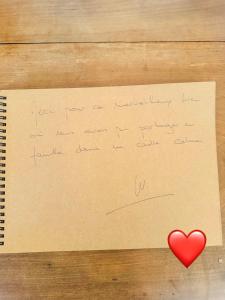 Merci pour ce merveilleux
où nous avons pu partager en
famille dans un cadre calme